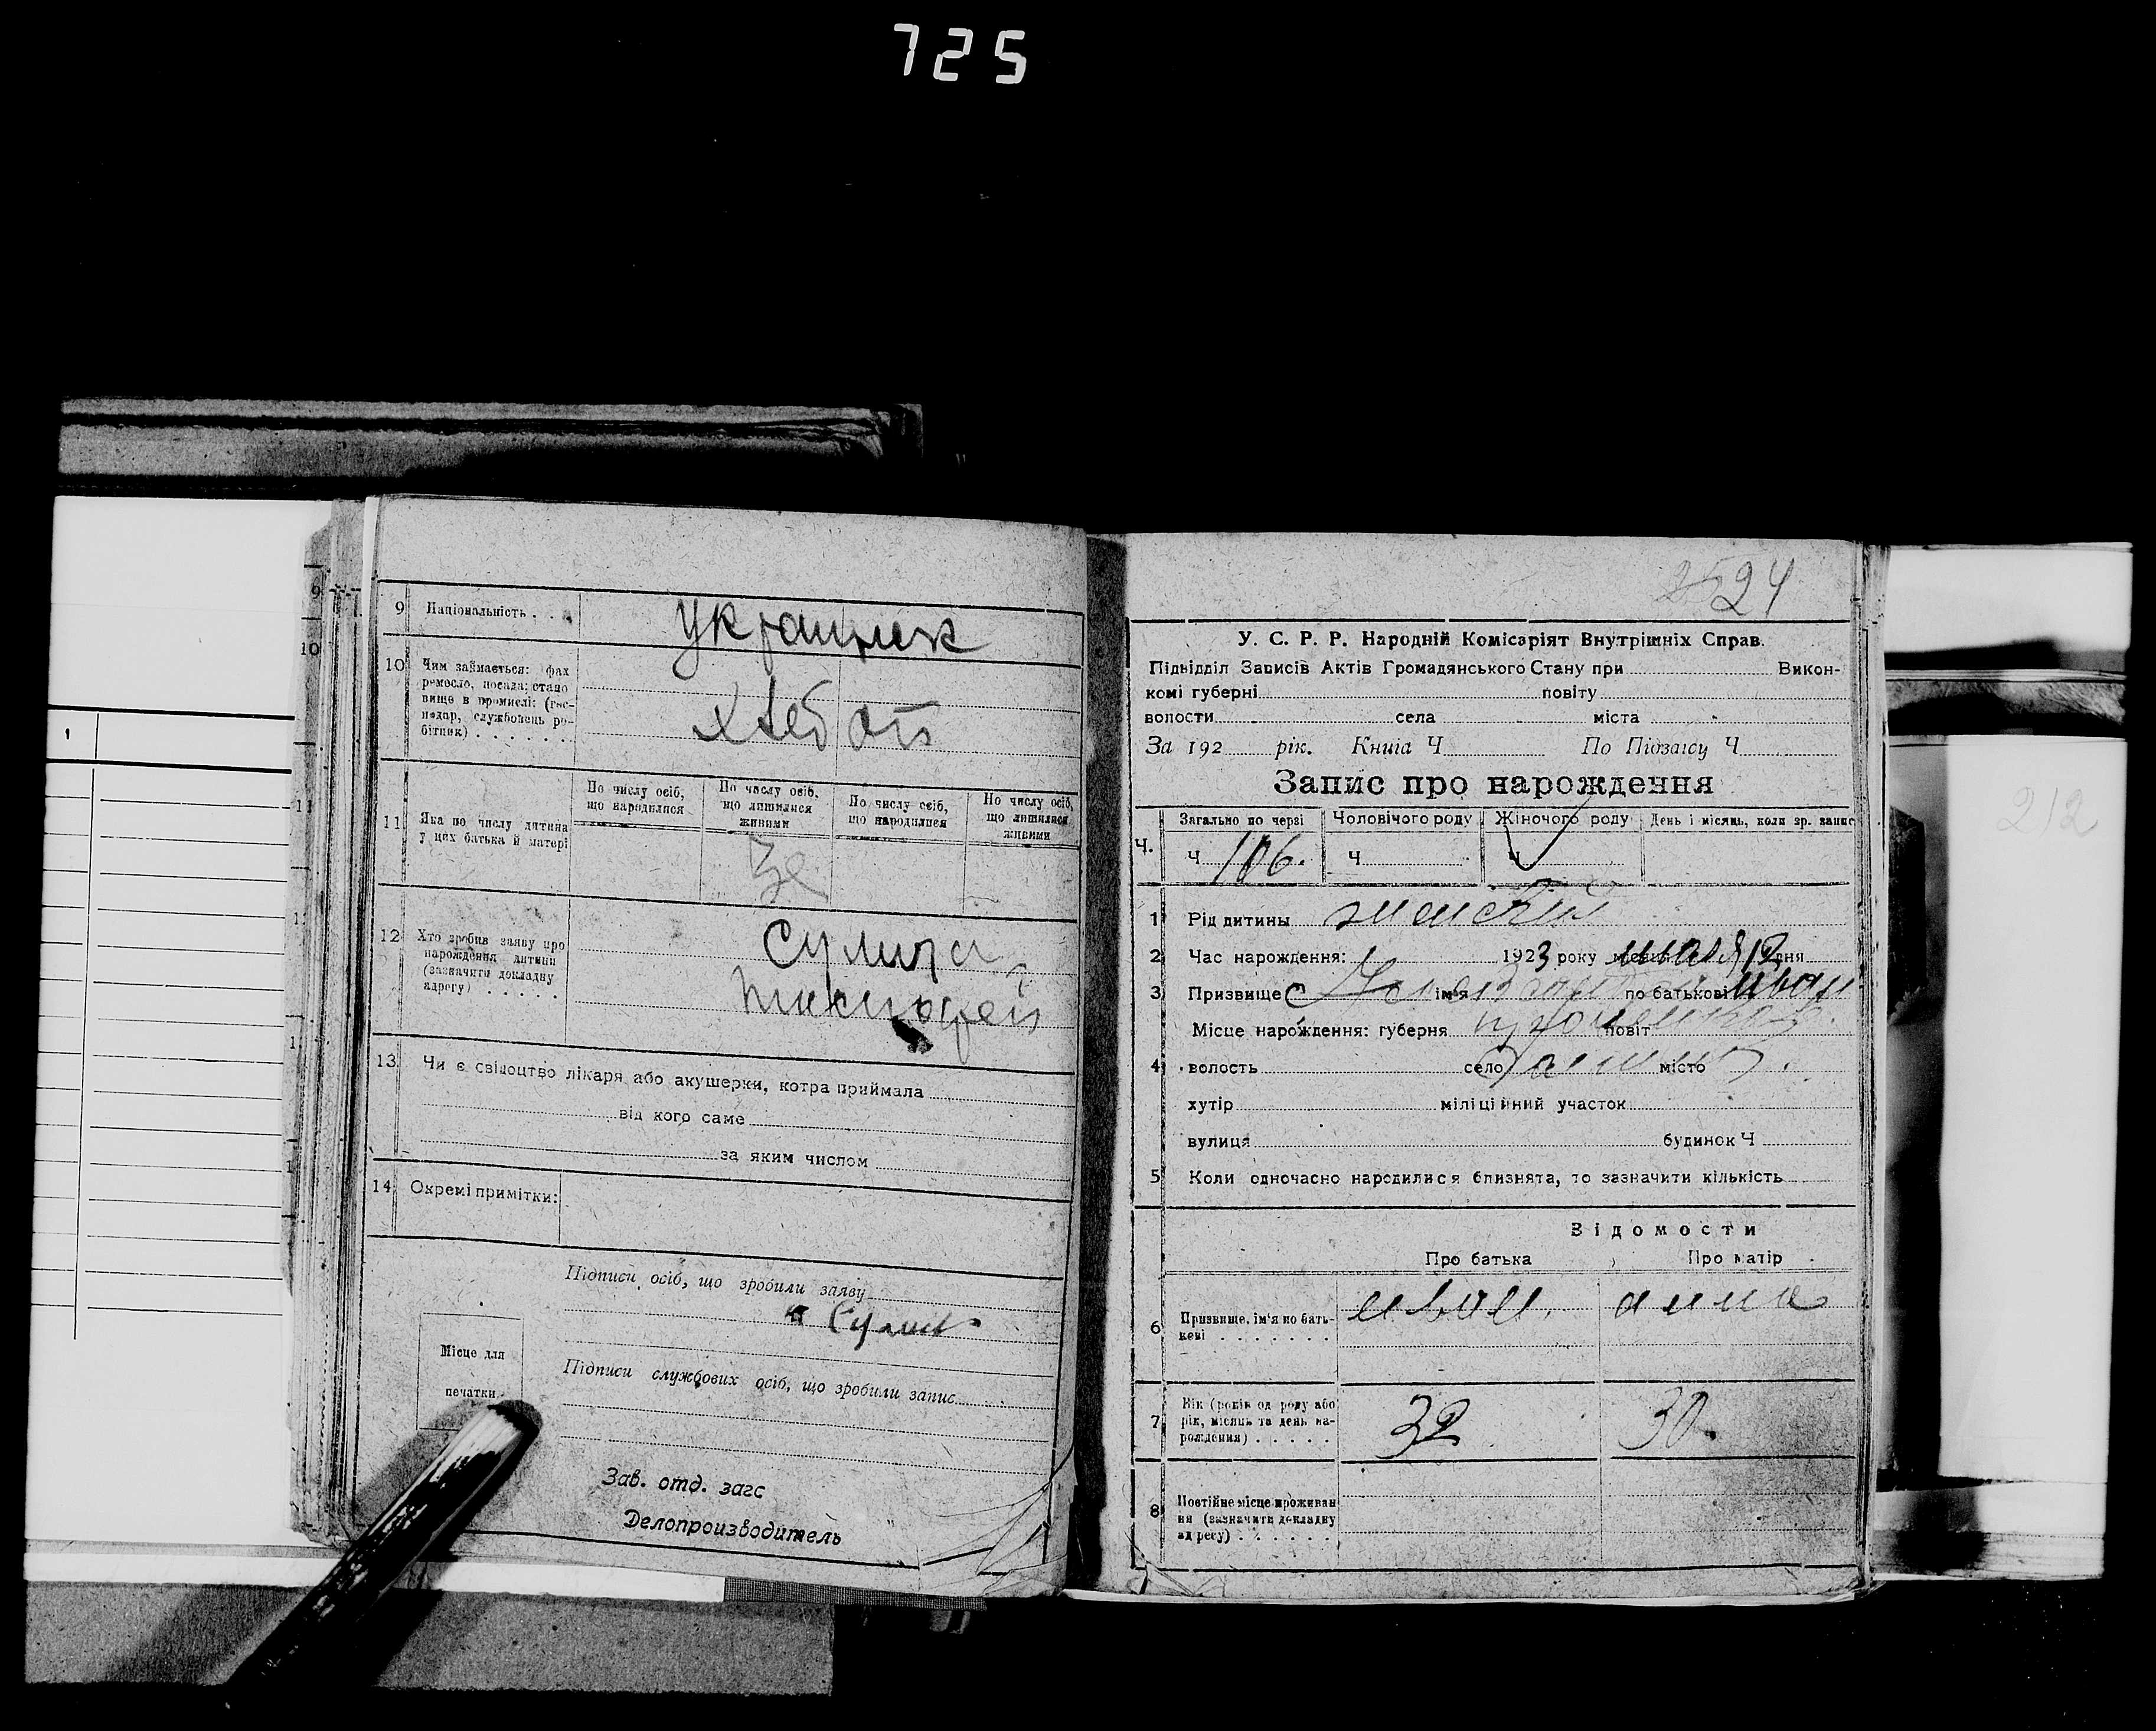 725
9 Національність . . .
украинск
10 Чим займається: фах
ремесло, посада; стано
вище в промислі: (гос-
подар, службовець ро-
бітник) . . . . . . .
хлеб
11 Яка по числу дитина
у цех батька й матері
По числу осіб,
що народилися
По числу осіб,
що лишилися
живими
По числу осіб,
що народилися
По числу осіб,
що лишилися
живими
12 Хто зробив заяву про
нарождення дитини
(зазначити докладну
адресу) . . . . .
Сулима
13 Чи є свідоцтво лікаря або акушерки, котра приймала
від кого саме
за яким числом
14 Окремі примітки:
Підписи осіб, що зробили заяву
Місце для
печатки
Підписи службових осіб, що зробили запис
Зав. отд. загс
Делопроизводитель
24
У. С. Р. Р. Народній Комісаріят Внутрішніх Справ.
Підвідділ Записів Актів Громадянського Стану при Викон-
комі губерні повіту
волости села міста
За 192 рік. Книга Ч По Підзагсу Ч
Запис про нарождення
Ч. Загально по черзі Чоловічого роду Жіночого роду День і місяць, коли зр. запис
Ч 106. Ч Ч
1 Рід дитины женский
2 Час нарождення: 1923 року мая 12 дня
3 Призвище ім'я по батькові Иван
Місце нарождення: губерня повіт
4 волость село місто
хутір міліційний участок
вулиця будинок Ч
5 Коли одночасно народилися близнята, то зазначити кількість
Відомости
Про батька Про матір
6 Призвище, ім'я по бать-
кові . . . . . . .
иван. анна
7 Вік (років од роду або
рік, місяць та день на-
рождения) . . . . .
32 30.
8 Постійне місце проживан
ня (зазначити докладну
адресу) . . . . . .
212